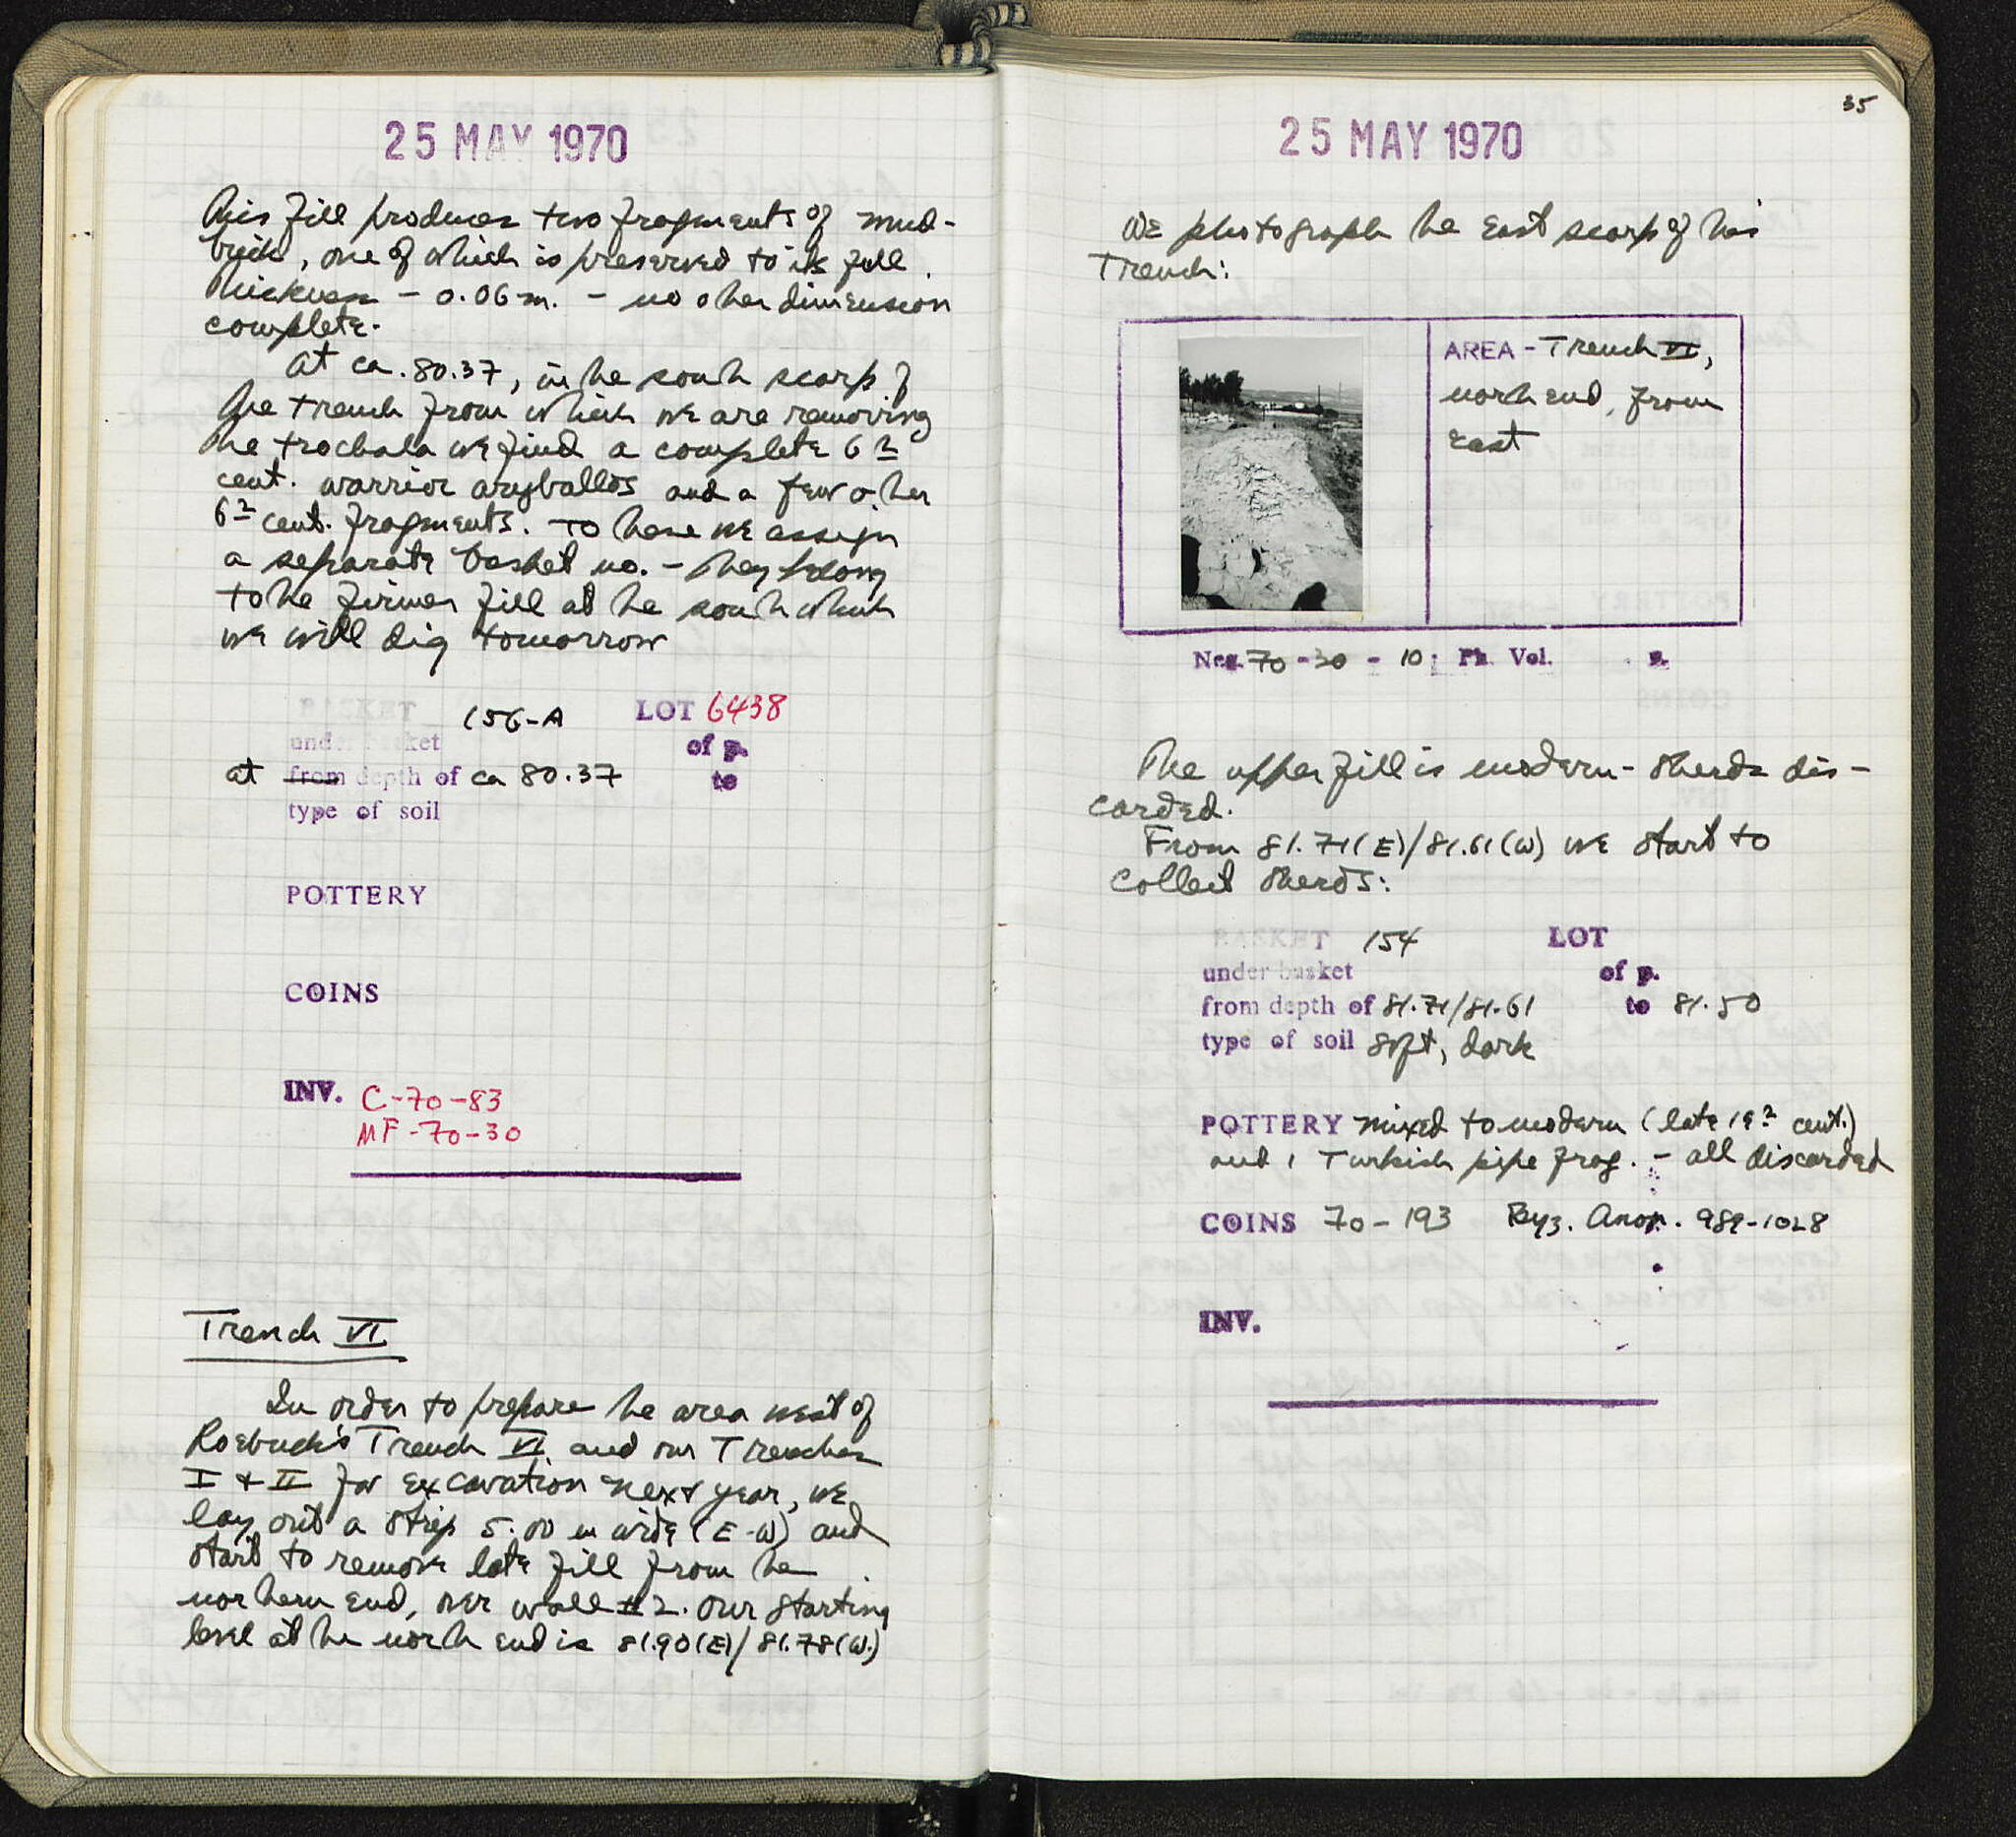 25 MAY 1970
This fill produces two fragments of mud-
brick, one of which is preserved to its full
thickness - 0.06 m. - no other dimension
complete.
At ca. 80.37, in the south scarp of
the trench from which we are removing
the trochala we find a complete 6th
cent. warrior aryballos and a few other
6th cent. fragments. To these we assign
a separate basket no. - they belong
to the firmer fill at the south which
we will dig tomorrow
BASKET 156-A LOT 6438
under basket of p.
at from depth of ca 80.37 to
type of soil
POTTERY
COINS
INV. C-70-83
MF-70-30
Trench VI
In order to prepare the area west of
Roebuck's Trench VI and our Trenches
I + II for excavation next year, we
lay out a strip 5.00 m wide (E-W) and
start to remove late fill from the
northern end, over wall #2. Our starting
level at the north end is 81.90(E)/81.78(W.)
35
25 MAY 1970
We photograph the East scarp of this
Trench:
AREA - Trench VI,
north end, from
East
Neg. 70-30-10; Ph. Vol. p.
The upper fill is modern - sherds dis-
carded.
From 81.71(E)/81.61(W) we start to
collect sherds:
BASKET 154 LOT
under basket of p.
from depth of 81.71/81.61 to 81.50
type of soil soft, dark
POTTERY mixed to modern (late 19th cent.)
and 1 Turkish pipe frag. - all discarded
COINS 70-193 Byz. Anon. 989-1028
INV.